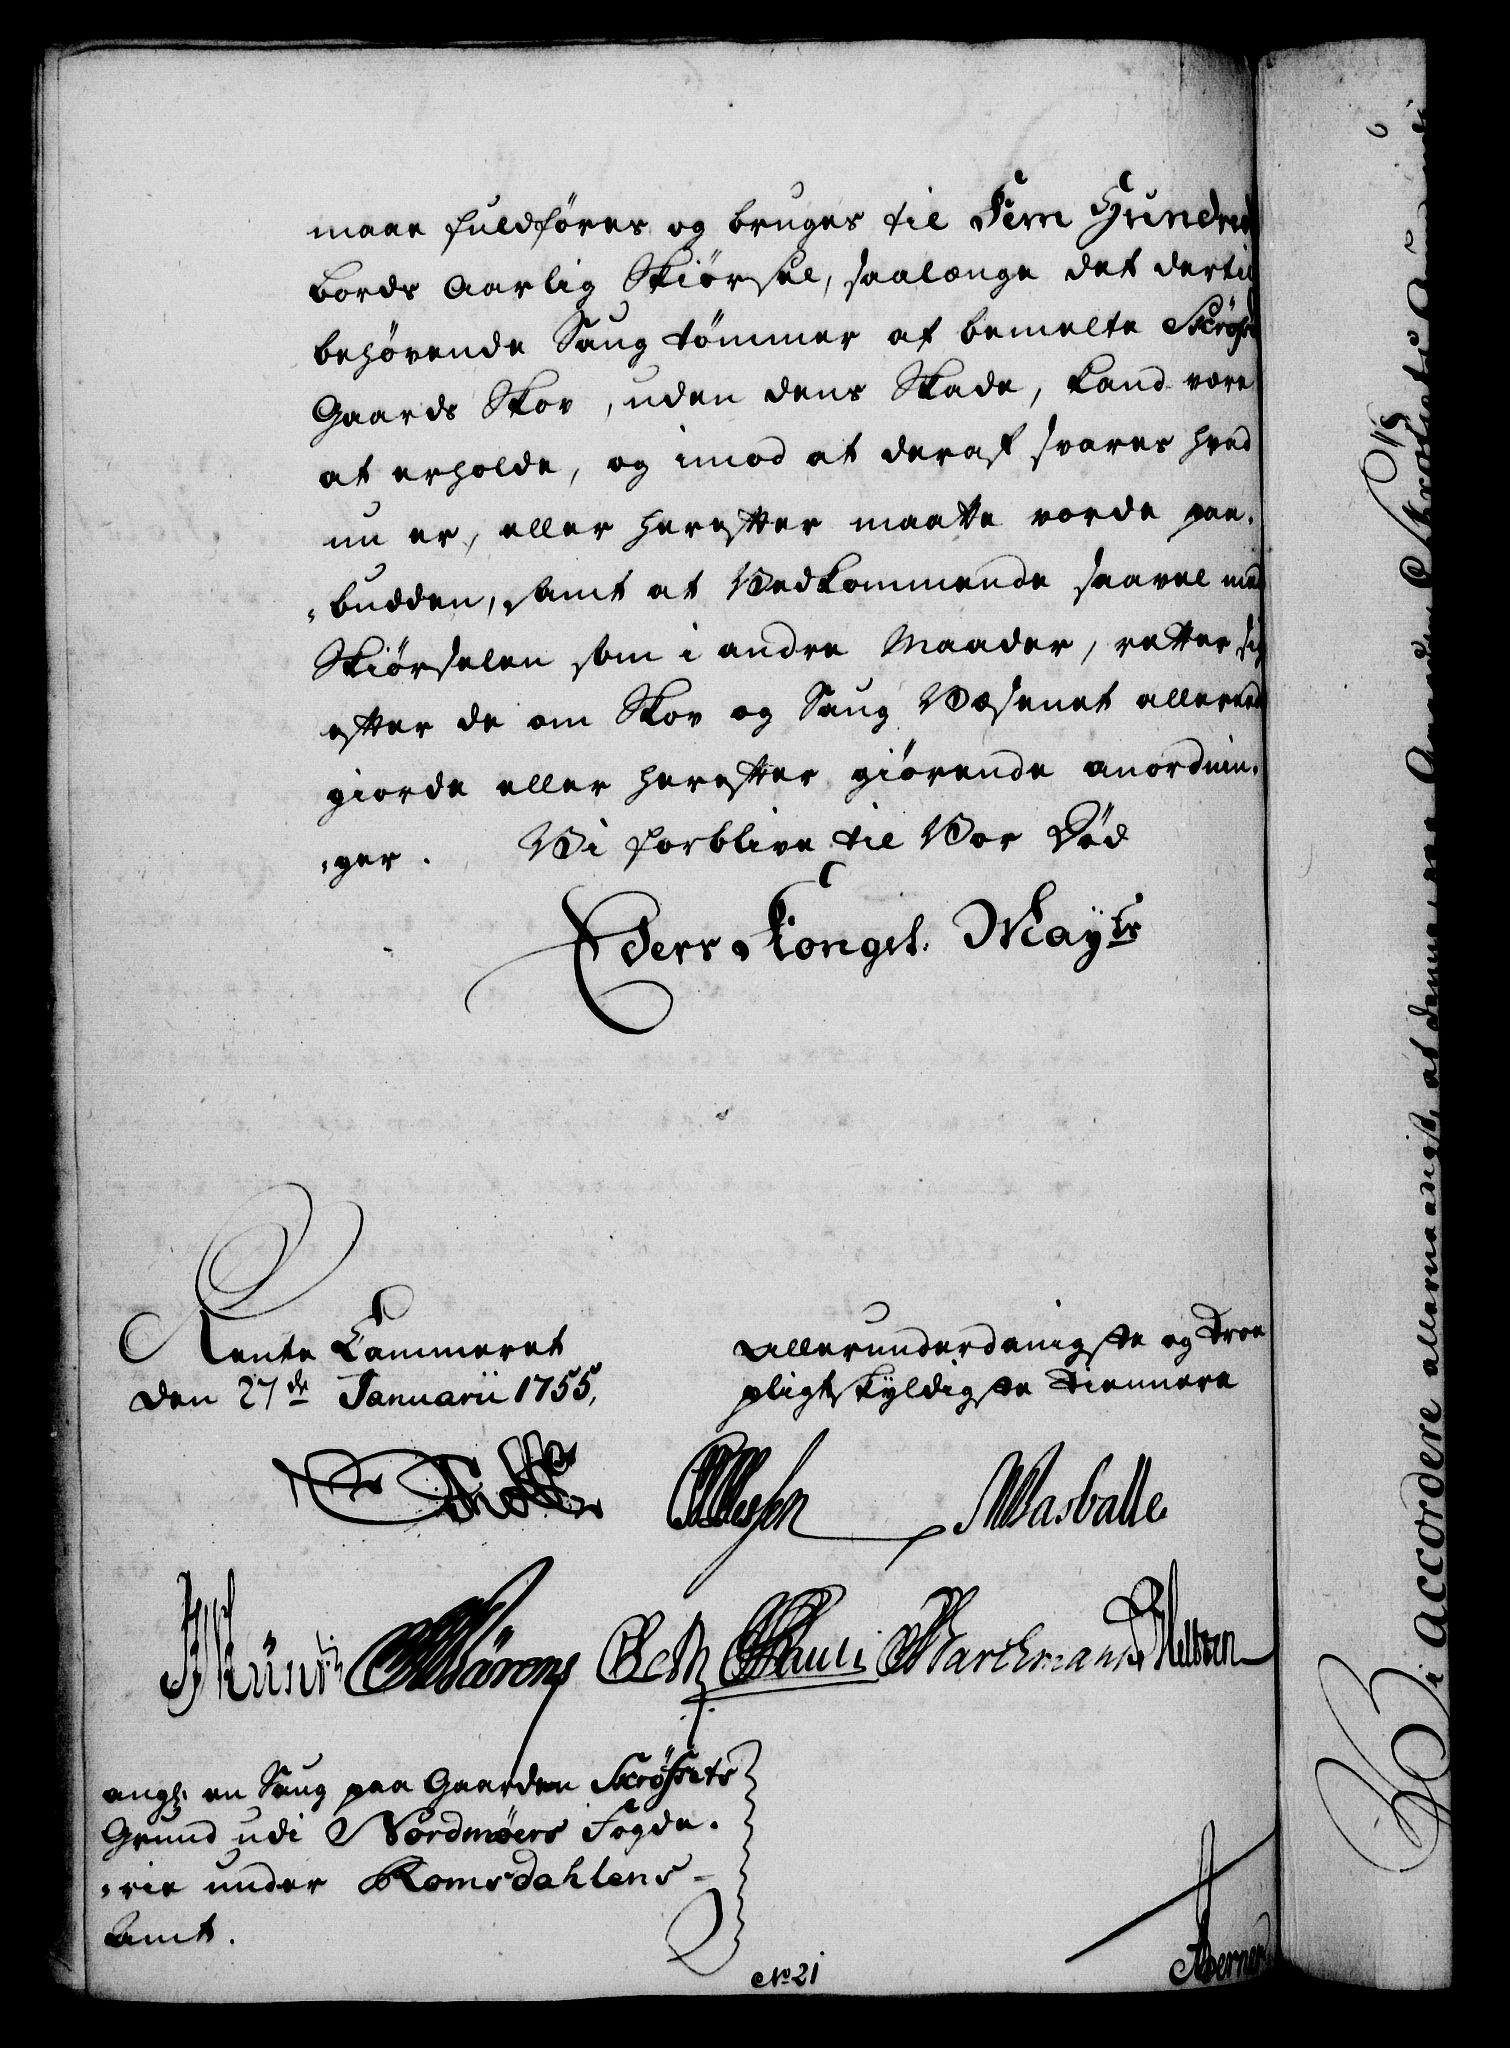 maae fuldføres og bruges til Fem Hundred
bords aarlig Skiørsel, saalænge det dertil
behøvende Saug tømmer af bemelte
Gaards Skov, uden dens Skade, kand være
at erholde, og imod at deraf svares hvad
nu er, eller herefter maatte vorde paa-
„budden, samt at Vedkommende saavel med
Skiørselen som i andre Maader, retter sig
efter de om Skov og Saug Væsenet allereede
giorde eller herefter giørende anordnin-
„ger. Vi forblive til Vor Död
Eders Kongel. Mayts
Rente Cammeret
den 27de Januarii 1755.
allerunderdanigste og troe
pligtskyldigste Tiennere
angl: en Saug paa Gaarden Skrøsets
Grund udi Nordmøers Fogde-
„rie under Romsdahlens-
Amt.
No 21
Vi accordere allernaadigst, at denne